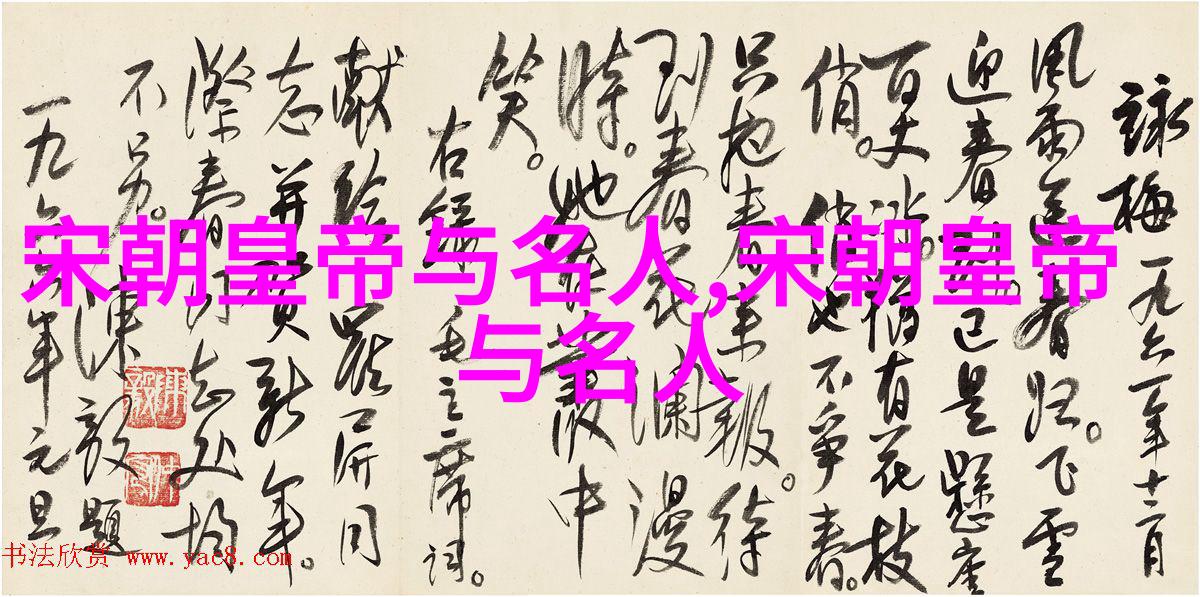 宋朝皇帝与名人,宋朝皇帝
与名人
詠梅 一九六一年十二月
风雨送春归。飞雪
迎春到。已是悬崖
百丈冰。犹有花枝
俏。俏也不争春。
只把春来报。待
到春花烂漫
时。她在中
笑。
右録毛主席词。
献给屏同
志并贺新年。
际春同志处均
不另。陈毅题
一九六年元旦
书法欣赏 www.yac8.com